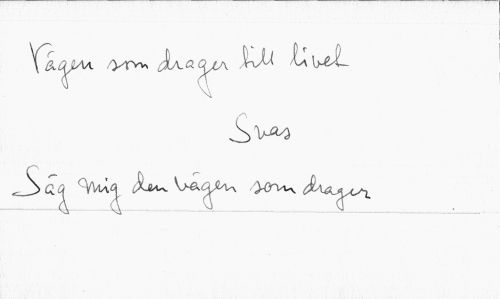 Vägen som drager till livet
Svas
Säg mig den vägen som drager